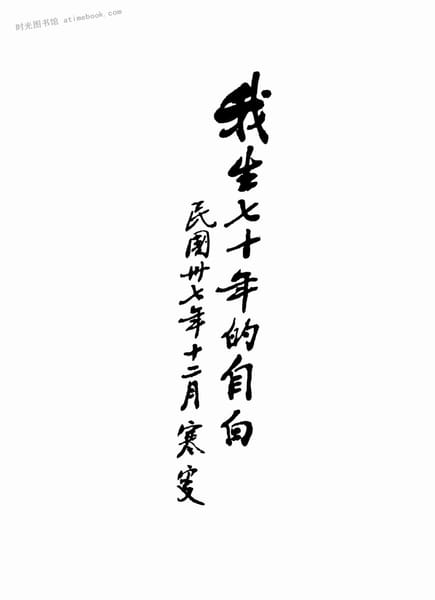 时光图书馆 atimebook.com
我生七十年的自白
民國卅七年十二月寒叟